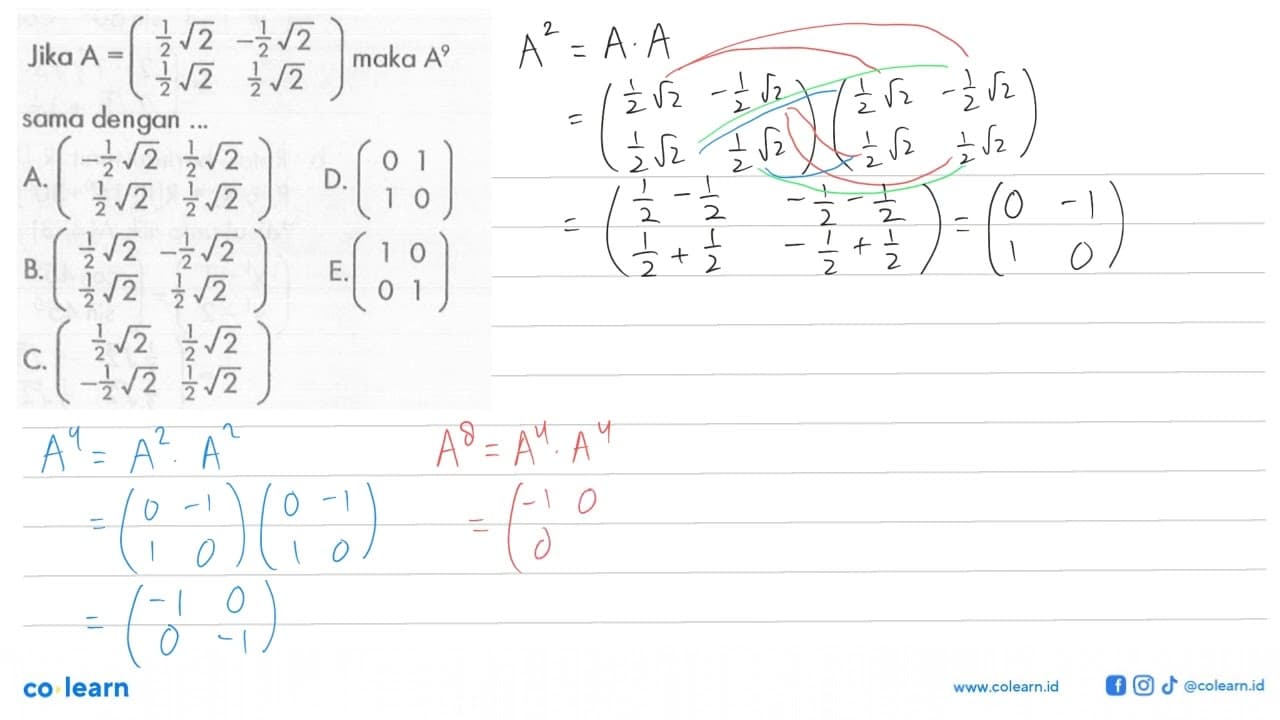 Jika A = ( ½√2 -½√2 ) maka A⁹
( ½√2 ½√2 )
sama dengan ...
A. ( -½√2 ½√2 )
( ½√2 ½√2 )
B. ( ½√2 -½√2 )
( ½√2 ½√2 )
C. ( ½√2 ½√2 )
( -½√2 ½√2 )
D. ( 0 1 )
( 1 0 )
E. ( 1 0 )
( 0 1 )
A² = A · A
= ( ½√2 -½√2 ) ( ½√2 -½√2 )
( ½√2 ½√2 ) ( ½√2 ½√2 )
= ( ½ - ½ -½ - ½ ) = ( 0 -1 )
( ½ + ½ -½ + ½ ) ( 1 0 )
A⁴ = A² · A²
= ( 0 -1 ) ( 0 -1 )
( 1 0 ) ( 1 0 )
= ( -1 0 )
( 0 -1 )
A⁸ = A⁴ · A⁴
= ( -1 0
( 0
co learn
www.colearn.id
@colearn.id